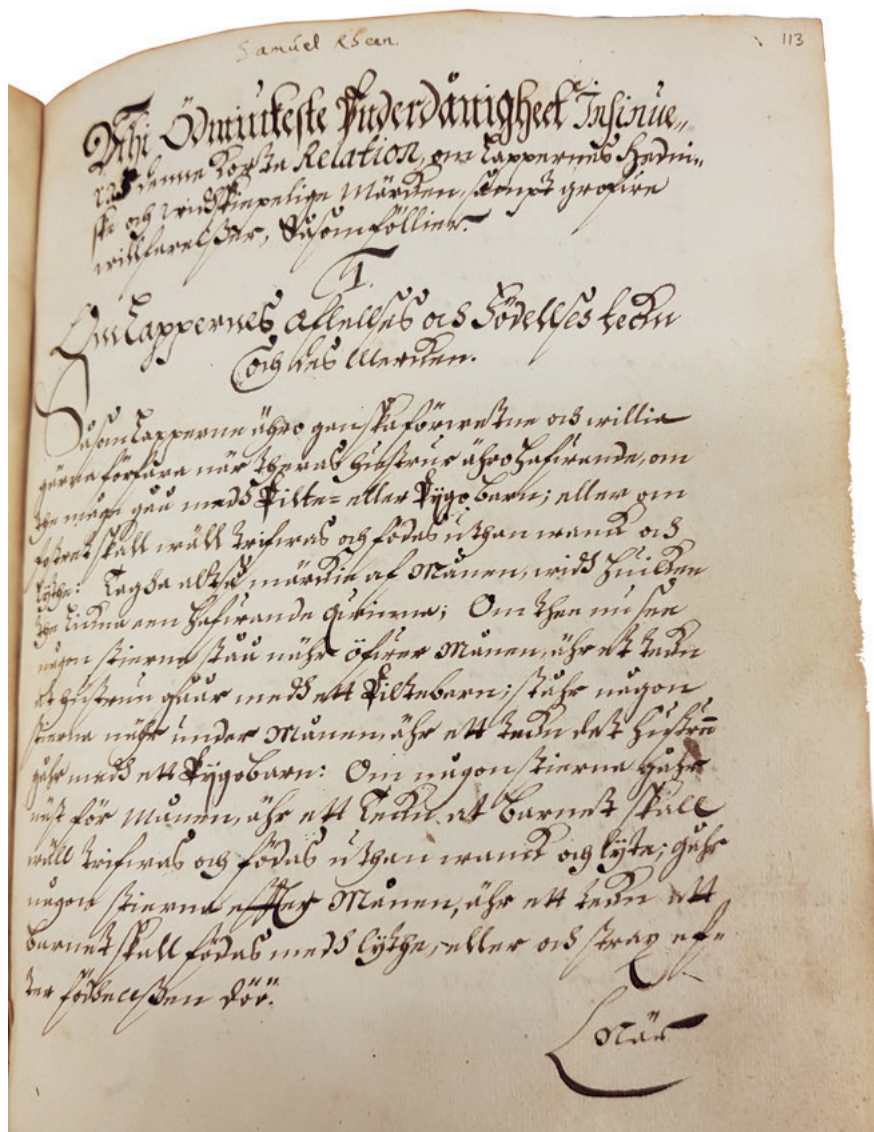 Samuel Rheen.
113
Uthi Ödmiukeste Underdånigheet Insinue„
ras denne Korta Relation, om Lappernes Hedni„
ske och widskiepelige Märcken, sampt grofwe
willfarelsser, Såsom föllier.
1.
Om Lappernes Aflellses och Födellses teckn
och des Mercken.
Såsom Lapperne ähro ganska förwetne och willia
gärna förfara när theras hustrur ähro hafwande, om
the måge gåå medh Pilte= eller Pygo barn; eller om
fostret skall wäll trifwas och födas uthan wanck och
lythe: Tagha altså märckie af Månen, widh huilcken
the lickna een hafwande Qwinna; Om thee nu see
någon stierna ståå nähr öfwer Månen, ähr ett teckn
at hustrun gåår medh ett Piltebarn; ståhr någon
stierna nähr under Månen, ähr ett teckn det hustru
gåhr medh ett Pygobarn: Om någon stierna gåhr
näst för Månen, ähr ett Teckn at Barnet skall
wäll trifwas och födas uthan wanck och lyte; gåhr
någon stierna effter Månen, ähr ett teckn att
barnet skall födas medh lythe, eller och strax ef„
ter födhellssen döör.
När